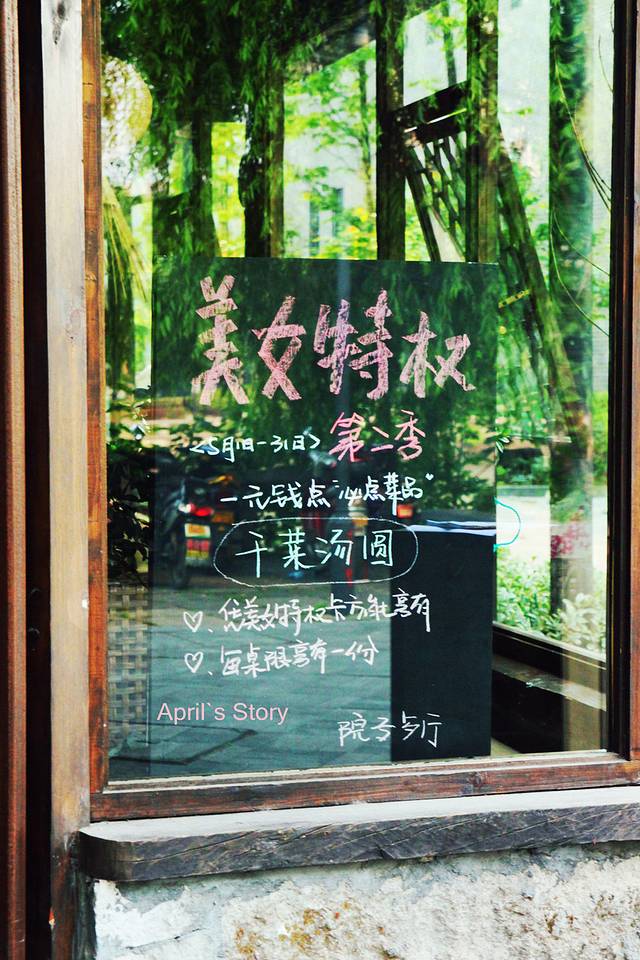 美女特权
<5月1日-31日> 第二季
一元钱点"沁点菜品"
干菜汤圆
♡、凭美女特权卡方能享有
♡、每桌限享有一份
April`s Story
院子与厅